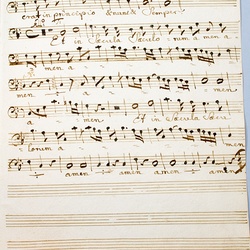 erat in principio & nunc & Semper
Et in Saecula Saeculorum amen a
men a
men a men
a men Et in Saecula Saecu
lorum a men a
men amen amen amen amen